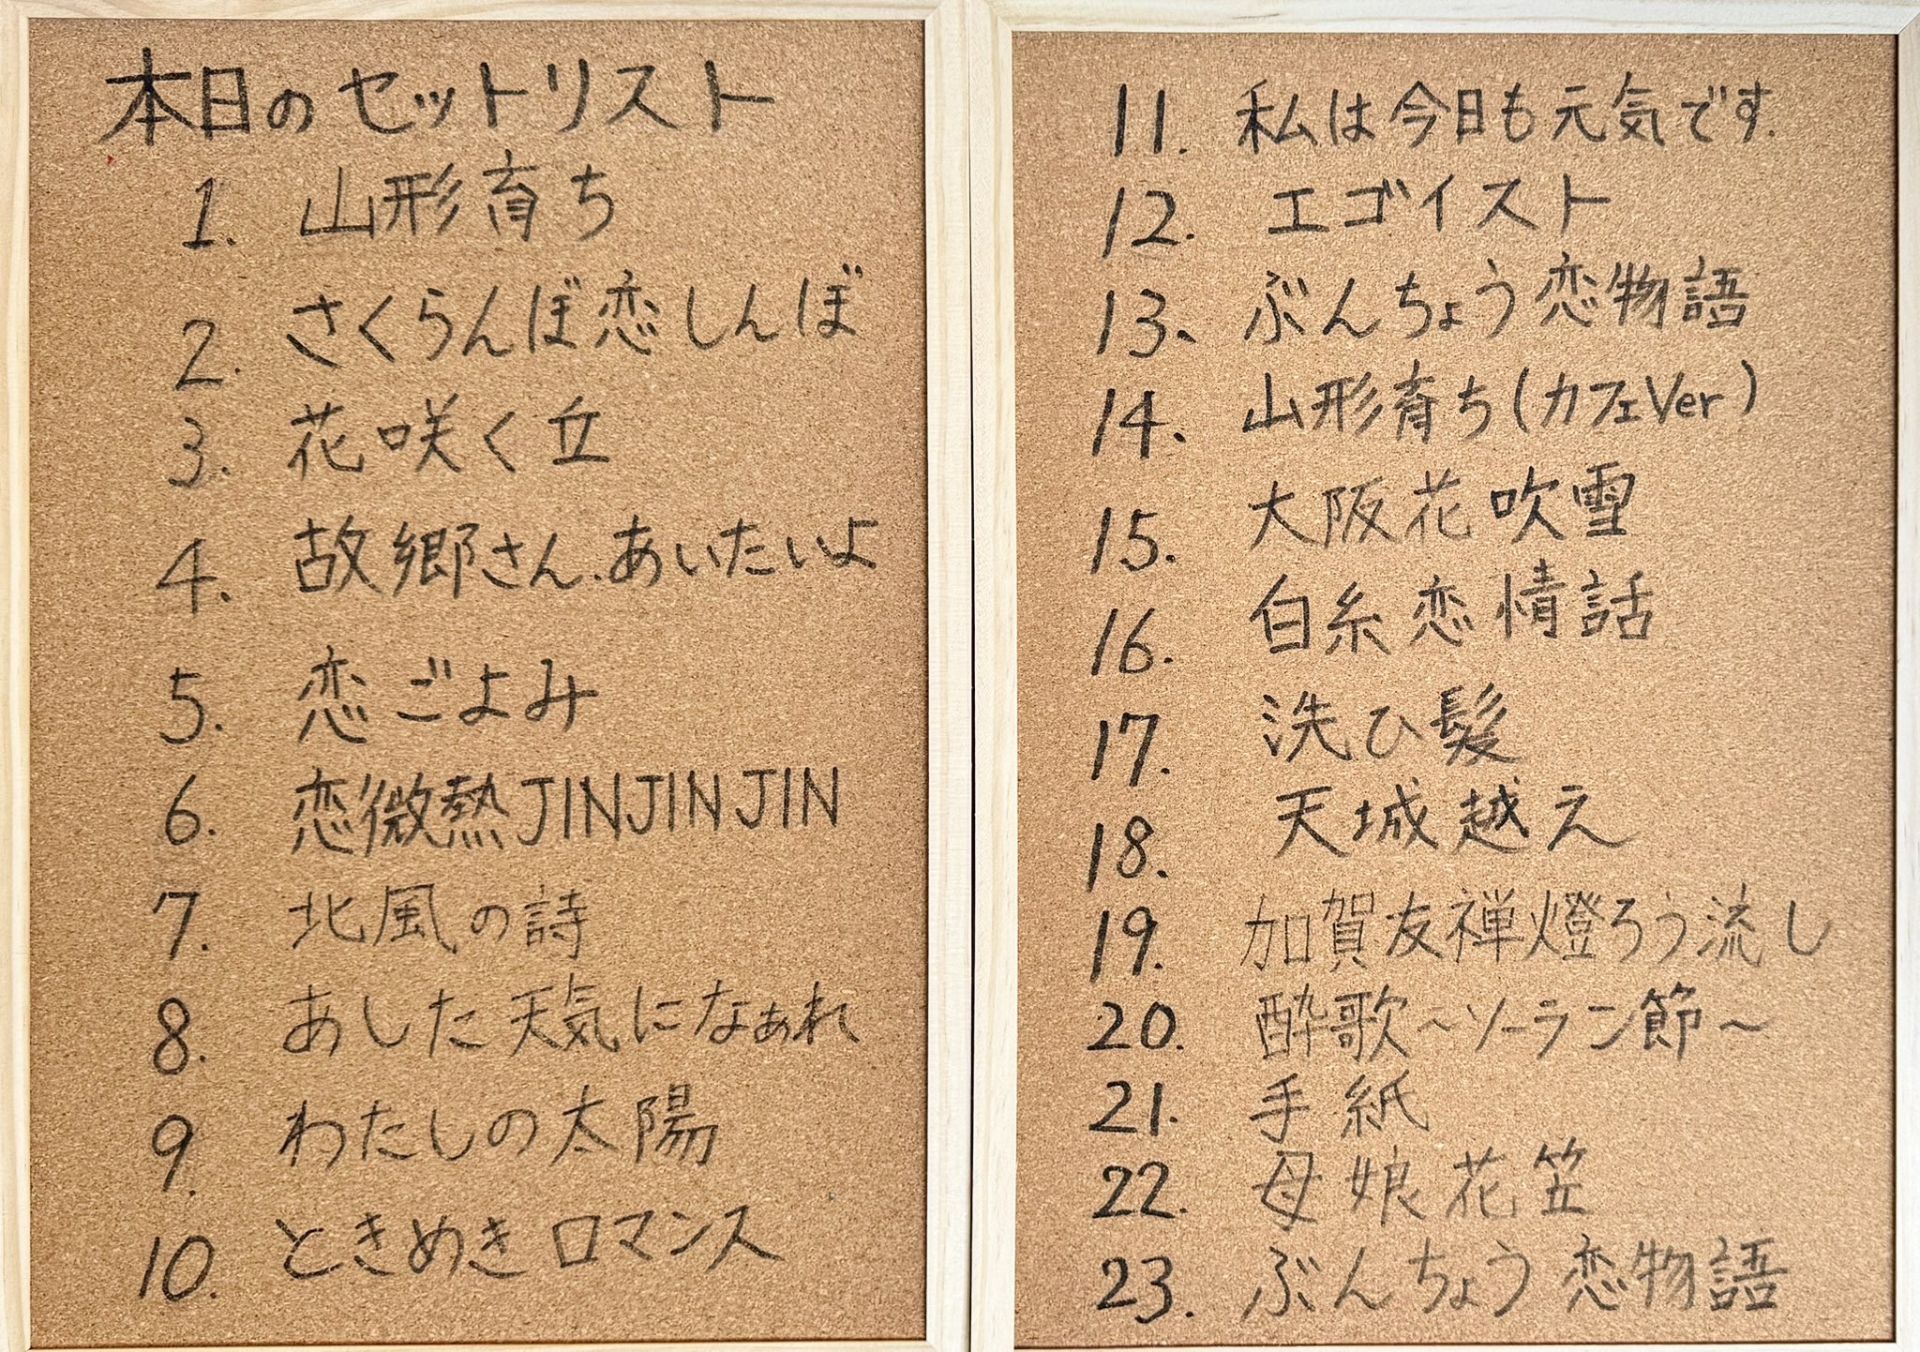 本日のセットリスト
1. 山形育ち
2. さくらんぼ恋しんぼ
3. 花咲く丘
4. 故郷さん、あいたいよ
5. 恋ごよみ
6. 恋微熱JINJINJIN
7. 北風の詩
8. あした天気になぁれ
9. わたしの太陽
10. ときめきロマンス
11. 私は今日も元気です.
12. エゴイスト
13. ぶんちょう恋物語
14. 山形育ち(カフェVer)
15. 大阪花吹雪
16. 白糸恋情話
17. 洗ひ髪
18. 天城越え
19. 加賀友禅燈ろう流し
20. 酔歌～ソーラン節～
21. 手紙
22. 母娘花笠
23. ぶんちょう恋物語